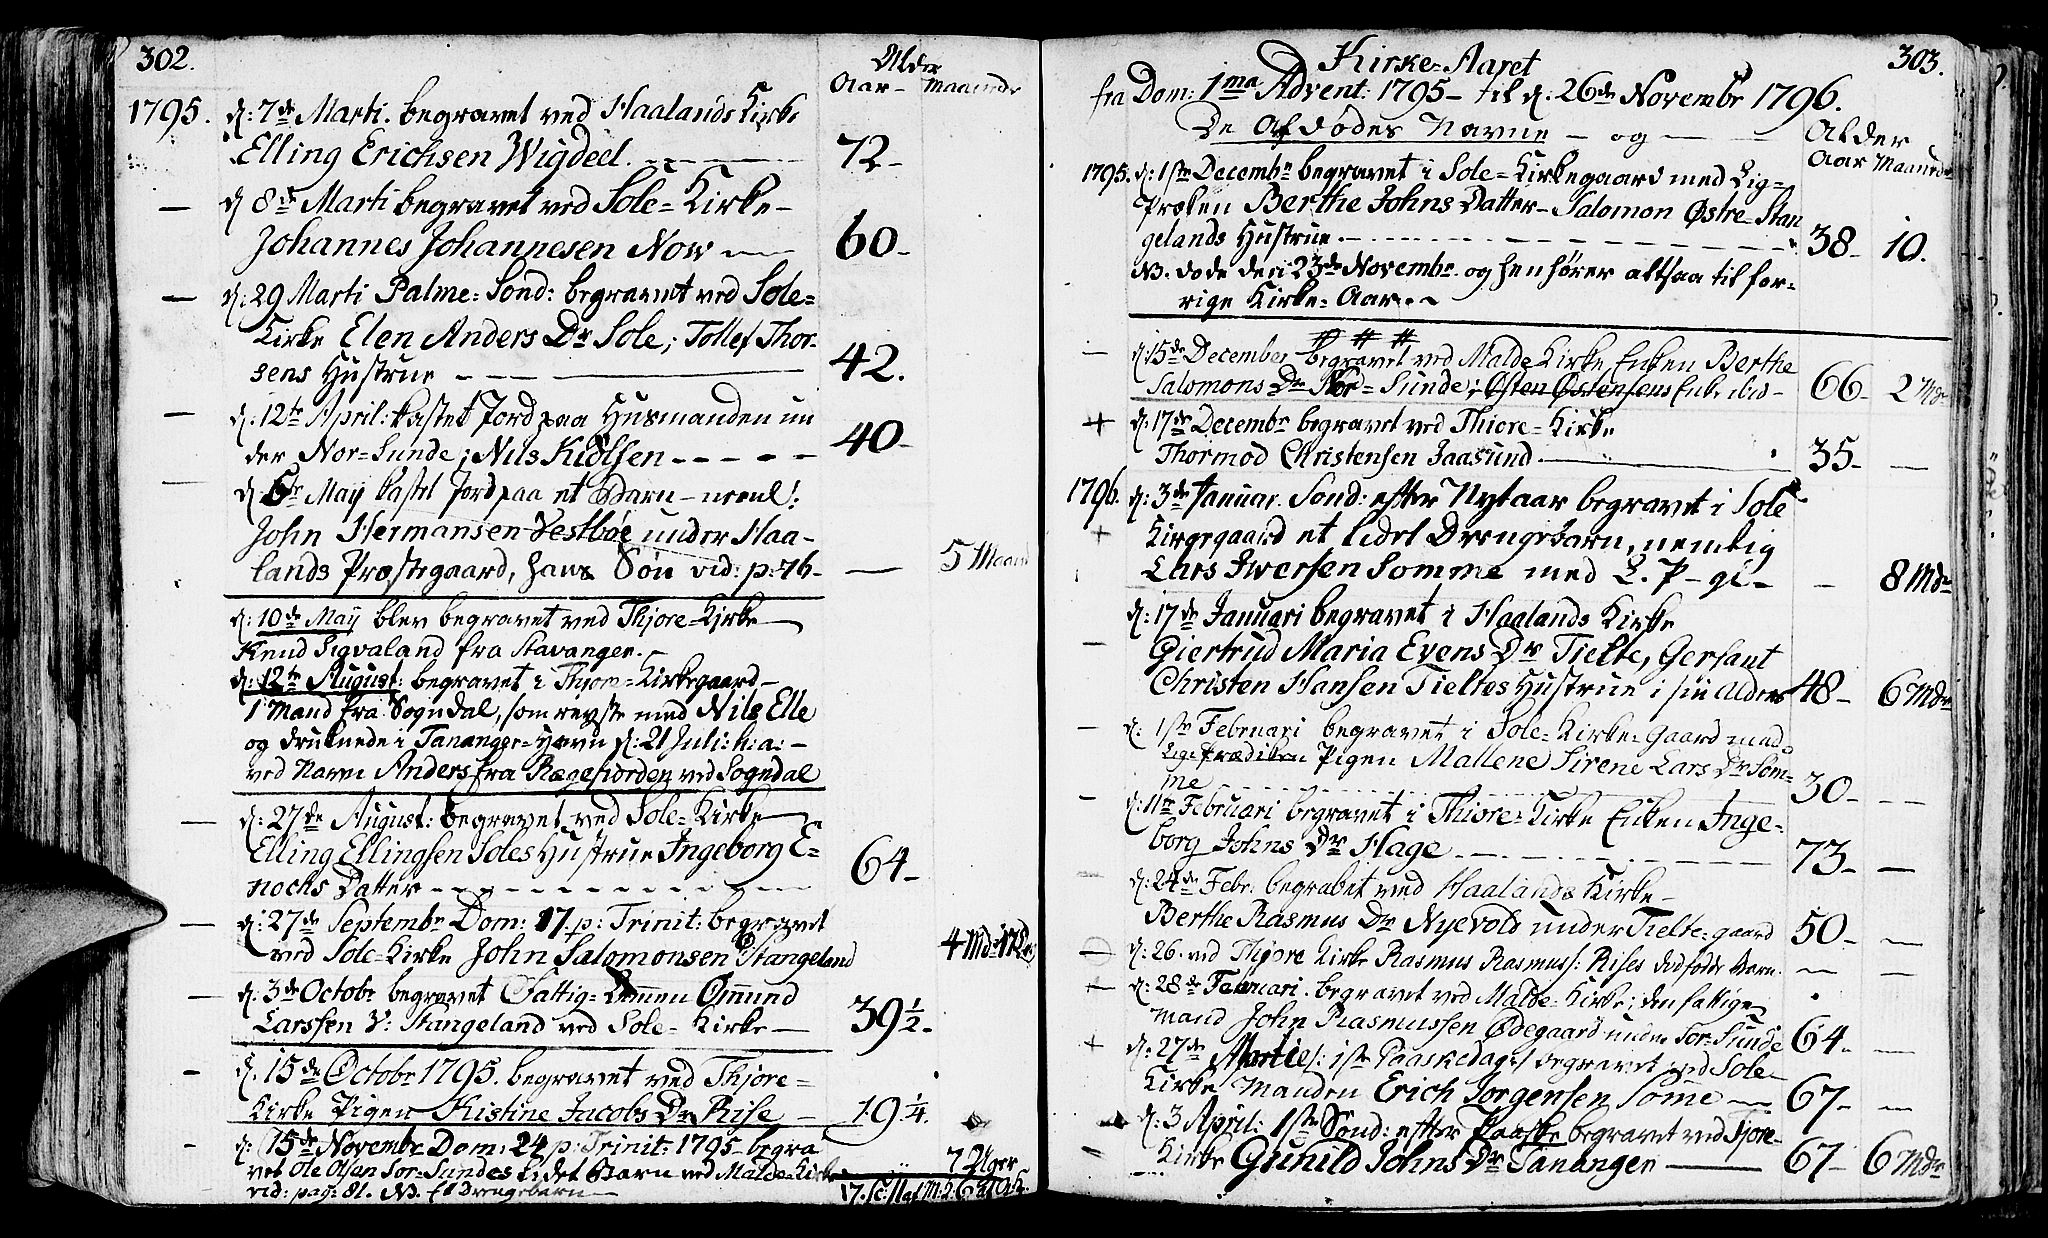 302.
Alder
Aar – Maaneder
1795. d: 7de Marti. begravet ved Haalands Kirke
Elling Erichsen Wigdeel. 72 –
– d 8de Marti begravet ved Sole = Kirke –
Johannes Johannesen Now 60 –
– d: 29 Marti Palme = Sond: begravet ved Sole =
Kirke Elen Anders Dr Sole; Tollef Thor-
sens Hustrue 42.
– d: 12te April: kastet Jord paa Husmanden un
der Nor = Sunde; Nils Kiölsen 40 –
– d: 6te Maij kastet Jord paa et Barn – neml:
John Hermansen Vestböe under Haa-
lands Præstegaard, hans Sön vid: p: 76 – — 5 Maan
d: 10de Maij blev begravet ved Thjore = Kirke
Knud Sigvaland fra Stavanger. –
d: 12te August: begravet i Thjore = Kirkegaard –
1 Mand fra Sogndal, som reyste med Nils Elle
og druknede i Tananger = Havn d: 21 Juli: h: a: –
ved Navn Anders fra Rægefiorden ved Sogndal
– d: 27de August: begravet ved Sole = Kirke
Elling Ellingsen Soles Hustrue Ingeborg E =
nochs Datter 64 –
– d: 27de Septembr Dom: 17. p: Trinit: begravet
ved Sole = Kirke John Salomonsen Ø Stangeland 4 Md:
– d: 3de Octobr begravet Fattig = Lemmen Omund
Larssen Y: Stangeland ved Sole = Kirke – 39 1/2 –
– d. 15de Octobr 1795. begravet ved Thjore =
Kirke Pigen Kistine Jacobs Dr Rise – 19 1/4.
– d: 15de Novembr Dom: 24 p: Trinit: 1795 – begra
vet Ole Olsen Sör = Sundes lidet Barn ved Malde = Kirke 7 Uger
vid: pag: 81. NB. et Drengebarn –
303.
Kirke = Aaret
fra Dom: 1ma Advent: 1795 – til d: 26de Novembr 1796.
De Afdødes Navne – og – Alder
Aar Maaneder
1795. d: 1ste Decembr begravet i Sole = Kirkegaard med Lig =
Præken Berthe Johns Datter – Salomon Østre = Stan
gelands Hustrue. 38 – 10.
NB. døde den 23de Novembr. og henhører altsaa til for-
rige Kirke = Aar.
# # #
– d: 15de December begravet ved Malde Kirke Enken Berthe
Salomons Dr Nor = Sunde; Østen Østensens Enke ibid – 66 – 2 Mdr
+ d: 17de Decembr begravet ved Thiore = Kirke
Thormod Christensen Jaasund. 35 – —
1796. d: 3de Januar. Sond: efter Nytaar begravet i Sole
+ Kirgegaard et lidet Drengebarn, nemlig
Lars Iversen Somme med L. P – gi – – 8 Mdr
d: 17de Januari begravet i Haalands Kirke
– Giertrud Maria Evens Dr Tielte, Gersant
Christen Hansen Tieltes Hustrue i sin Alder 48 – 6 Mdr
– d: 1ste Februari begravet i Sole = Kirke = Gaard med
Lig = Prædiken Pigen Mallene Sirene Lars Dr Som =
me 30 – —
– d: 11te Februari begravet i Thiore = Kirke Enken Inge =
borg Johns Dr Hage 73 – —
– d: 24de Febr: begravet ved Haalands Kirke –
Berthe Rasmus Dr Nyevold under Tielte = gaard 50 – —
d: 26. ved Thjore Kirke Rasmus Rasmuss: Rises dødfødde Barn. — —
– d: 28de Februari. begravet ved Malde = Kirke; den fattige
Mand John Rasmussen Ødegaard under Sör = Sunde 64 – —
+ d: 27de Martii: 1ste Paaskedag begravet ved Sole –
Kirke Manden Erich Jorgensen Some 67 – —
d: 3 April: 1ste Sond: efter Paaske begravet ved Tjore –
Kirke Gunild Johns Dr Tananger 67 – 6 Mdr